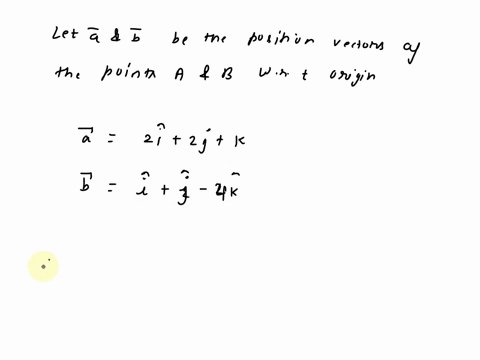 Let a̅ & b̅ be the position vectors of
the points A & B w.r.t origin
a⃗ = 2î + 2ĵ + k
b⃗ = î + ĵ - 4k̂